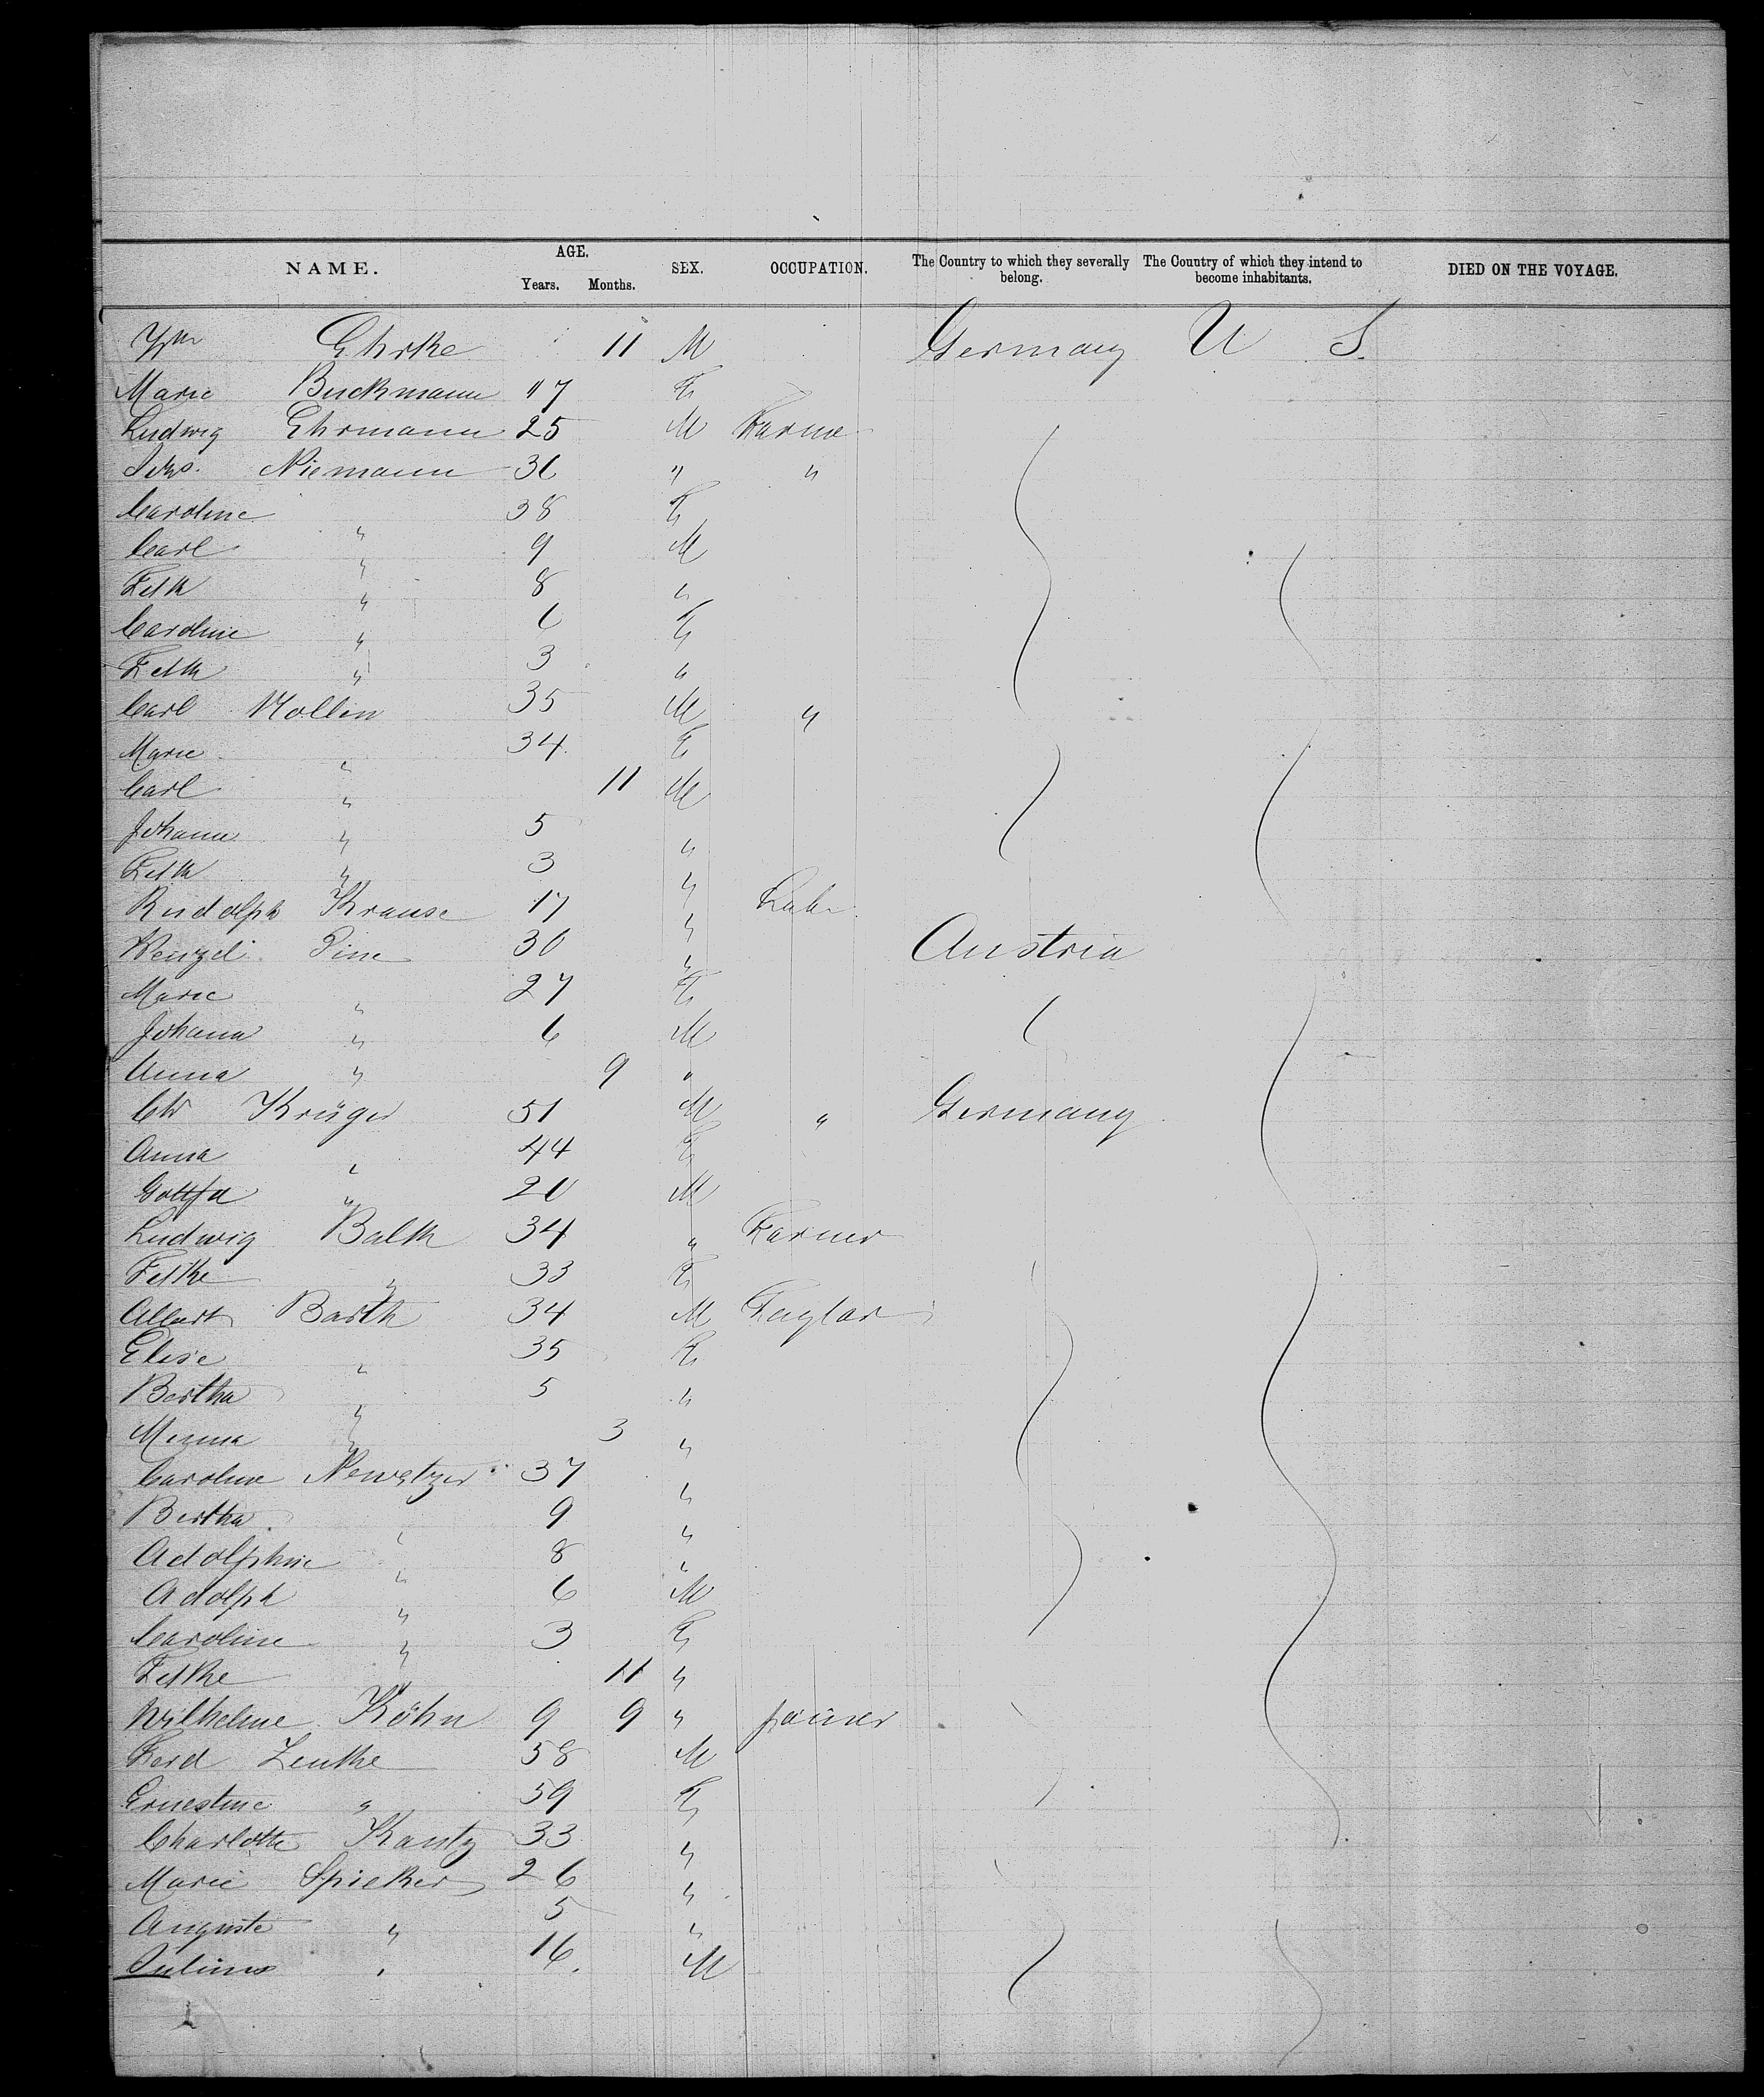 NAME. AGE. SEX. OCCUPATION. The Country to which they severally belong. The Country of which they intend to become inhabitants. DIED ON THE VOYAGE.
Years. Months.
Ehrke 11 M Germany U S.
Marie Buckmann 17 F
Ludwig Ehrmann 25 M Farmer
Niemann 36 " "
Caroline " 38 F
Carl " 9 M
" 8 "
Caroline " 6 F
" 3 "
Carl Mollen 35 M "
Marie " 34 F
Carl " 11 M
Johann " 5 "
" 3 "
Rudolph Krause 17 " Labr
Wenzel 30 " Austria
Marie " 27 F
Johann " 6 M
Anna " 9 "
Chr Krüger 51 M " Germany
Anna " 44 F
Gottfd " 20 M
Ludwig Balk 34 " Farmer
" 33 F
Albert Barth 34 M Taylor
Elise " 35 F
Bertha " 5 "
Minna " 3 "
Caroline Newetzer 37 "
Bertha " 9 "
Adolphine " 8 "
Adolph " 6 M
Caroline " 3 F
" 11 "
Wilhelme Köhn 9 9 " joiner
Ferd Zenthe 58 M
Ernestine " 59 F
Charlotte Kautz 33 "
Marie Spieker 26 "
Auguste " 5 "
Julius " 16. M